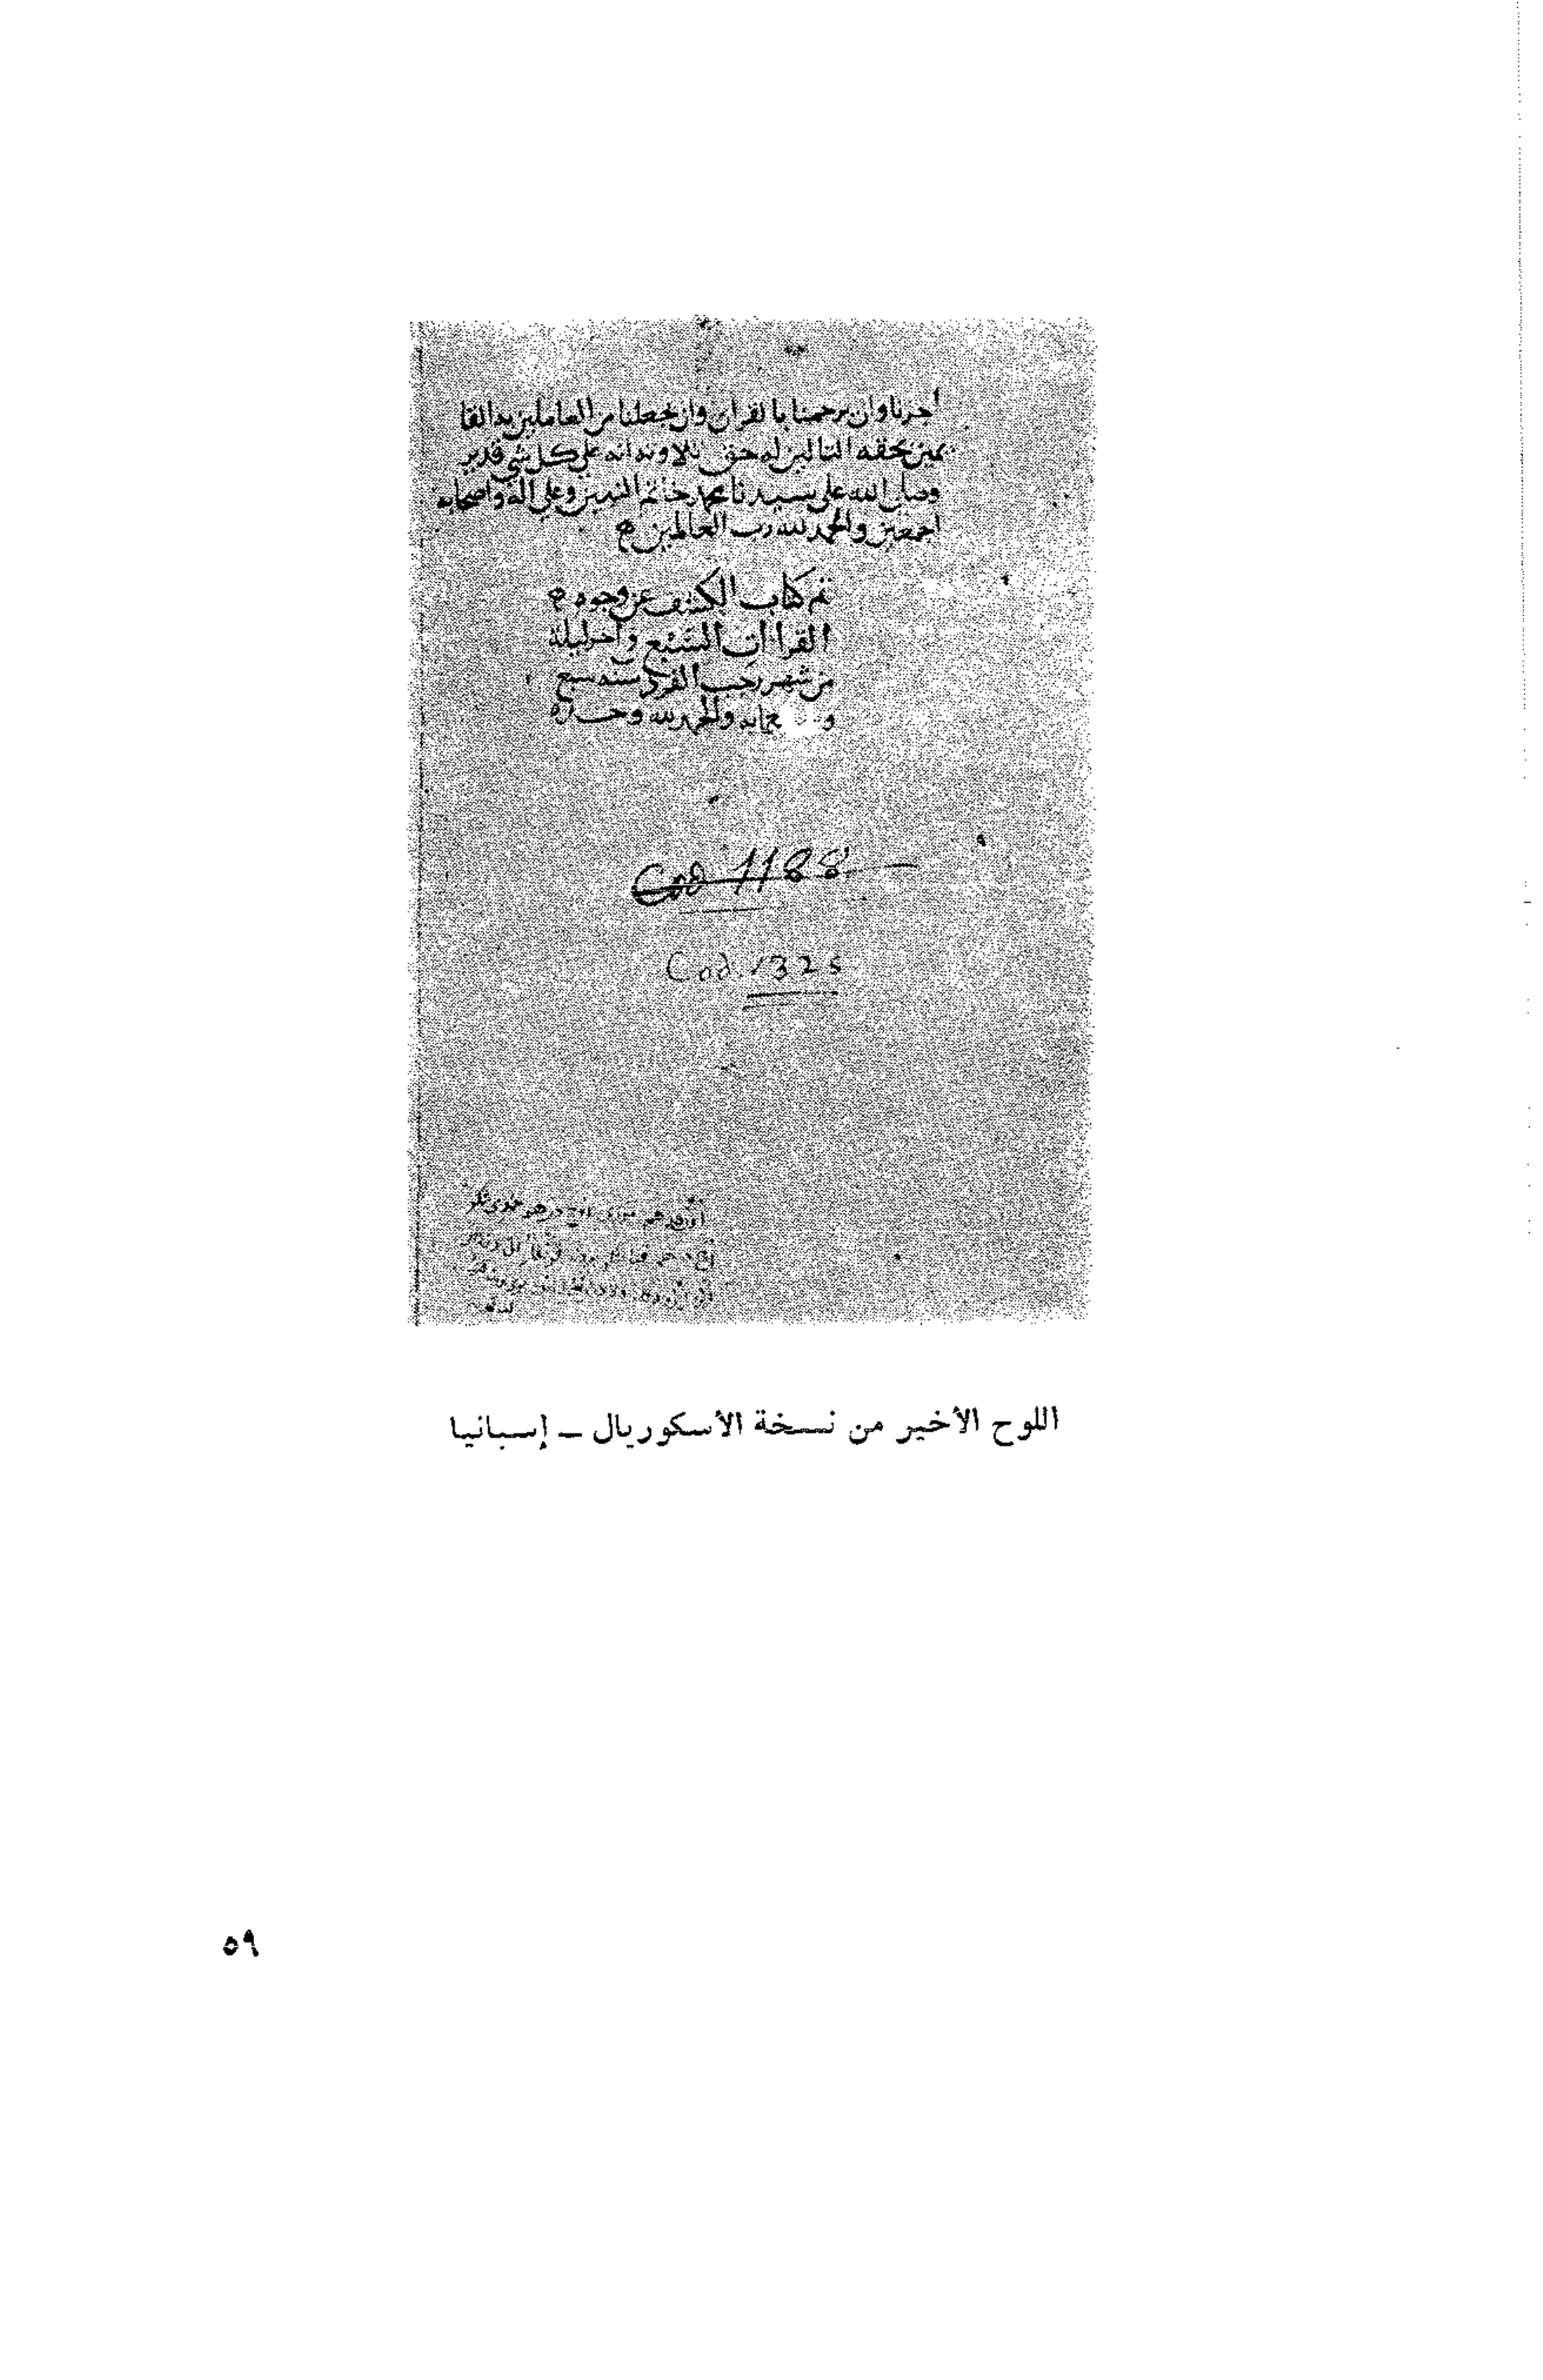 أجرنا وان يرحمنا بالقران وان يجعلنا من العاملين به القا
يمين بحقه التالين له حق تلاوته انه على كل شي قدير
وصلى الله على سيدنا محمد خاتم النبيين وعلى اله واصحابه
اجمعين والحمد لله رب العالمين
تم كتاب الكشف عن وجوه
القراات السبع وآخر ليلة
من شهر رجب الفرد سنة سبع
و مايه والحمد لله وحده
Cod 1188
Cod. 1325
اللوح الأخير من نسخة الأسكوريال ــ إسبانيا
٥٩